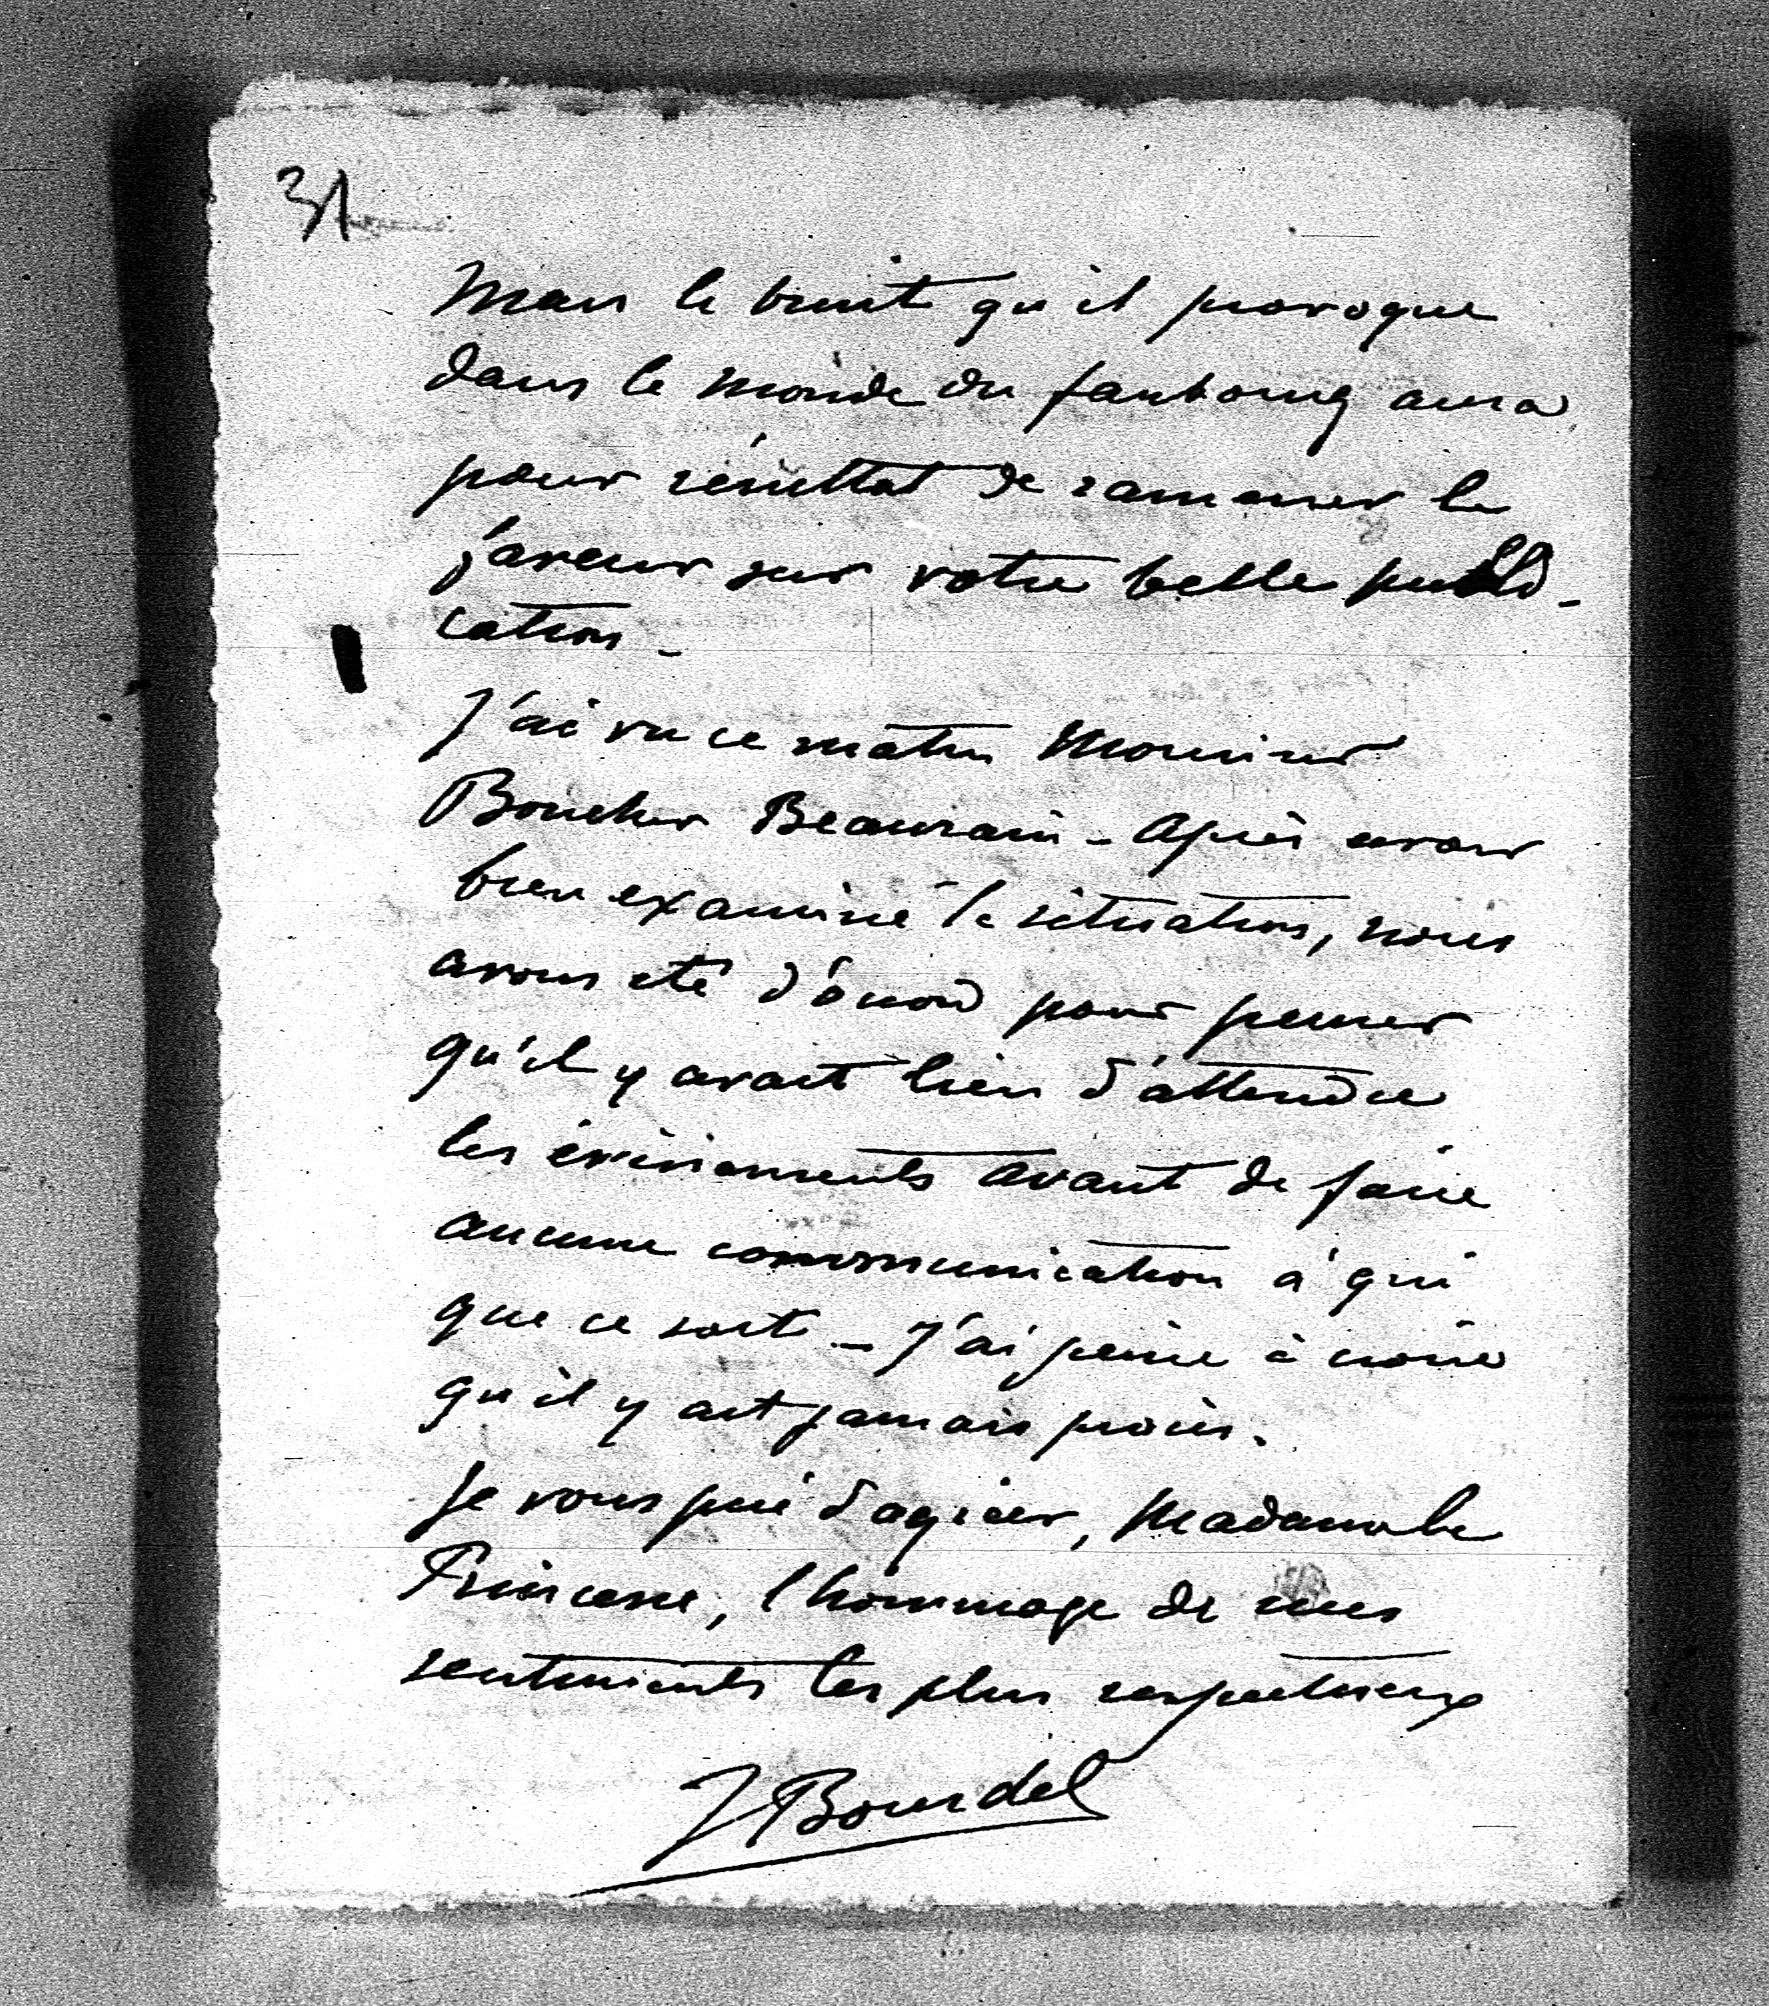 31
Mais le bruit qu'il provoque
dans le monde du faubourg aura
pour résultat de ramener la
faveur sur votre belle publi-
cation -
J'ai vu ce matin Monsieur
Boucher Beaurain - Après avoir
bien examiné la situation, nous
avons été d'accord pour penser
qu'il y avait lieu d'attendre
les évènements avant de faire
aucune communication à qui
que ce soit - J'ai peine à croire
qu'il y ait jamais procès.
Je vous prie d'agréer, Madame la
Princesse, l'hommage de mes
sentiments les plus respectueux
J Bourdel